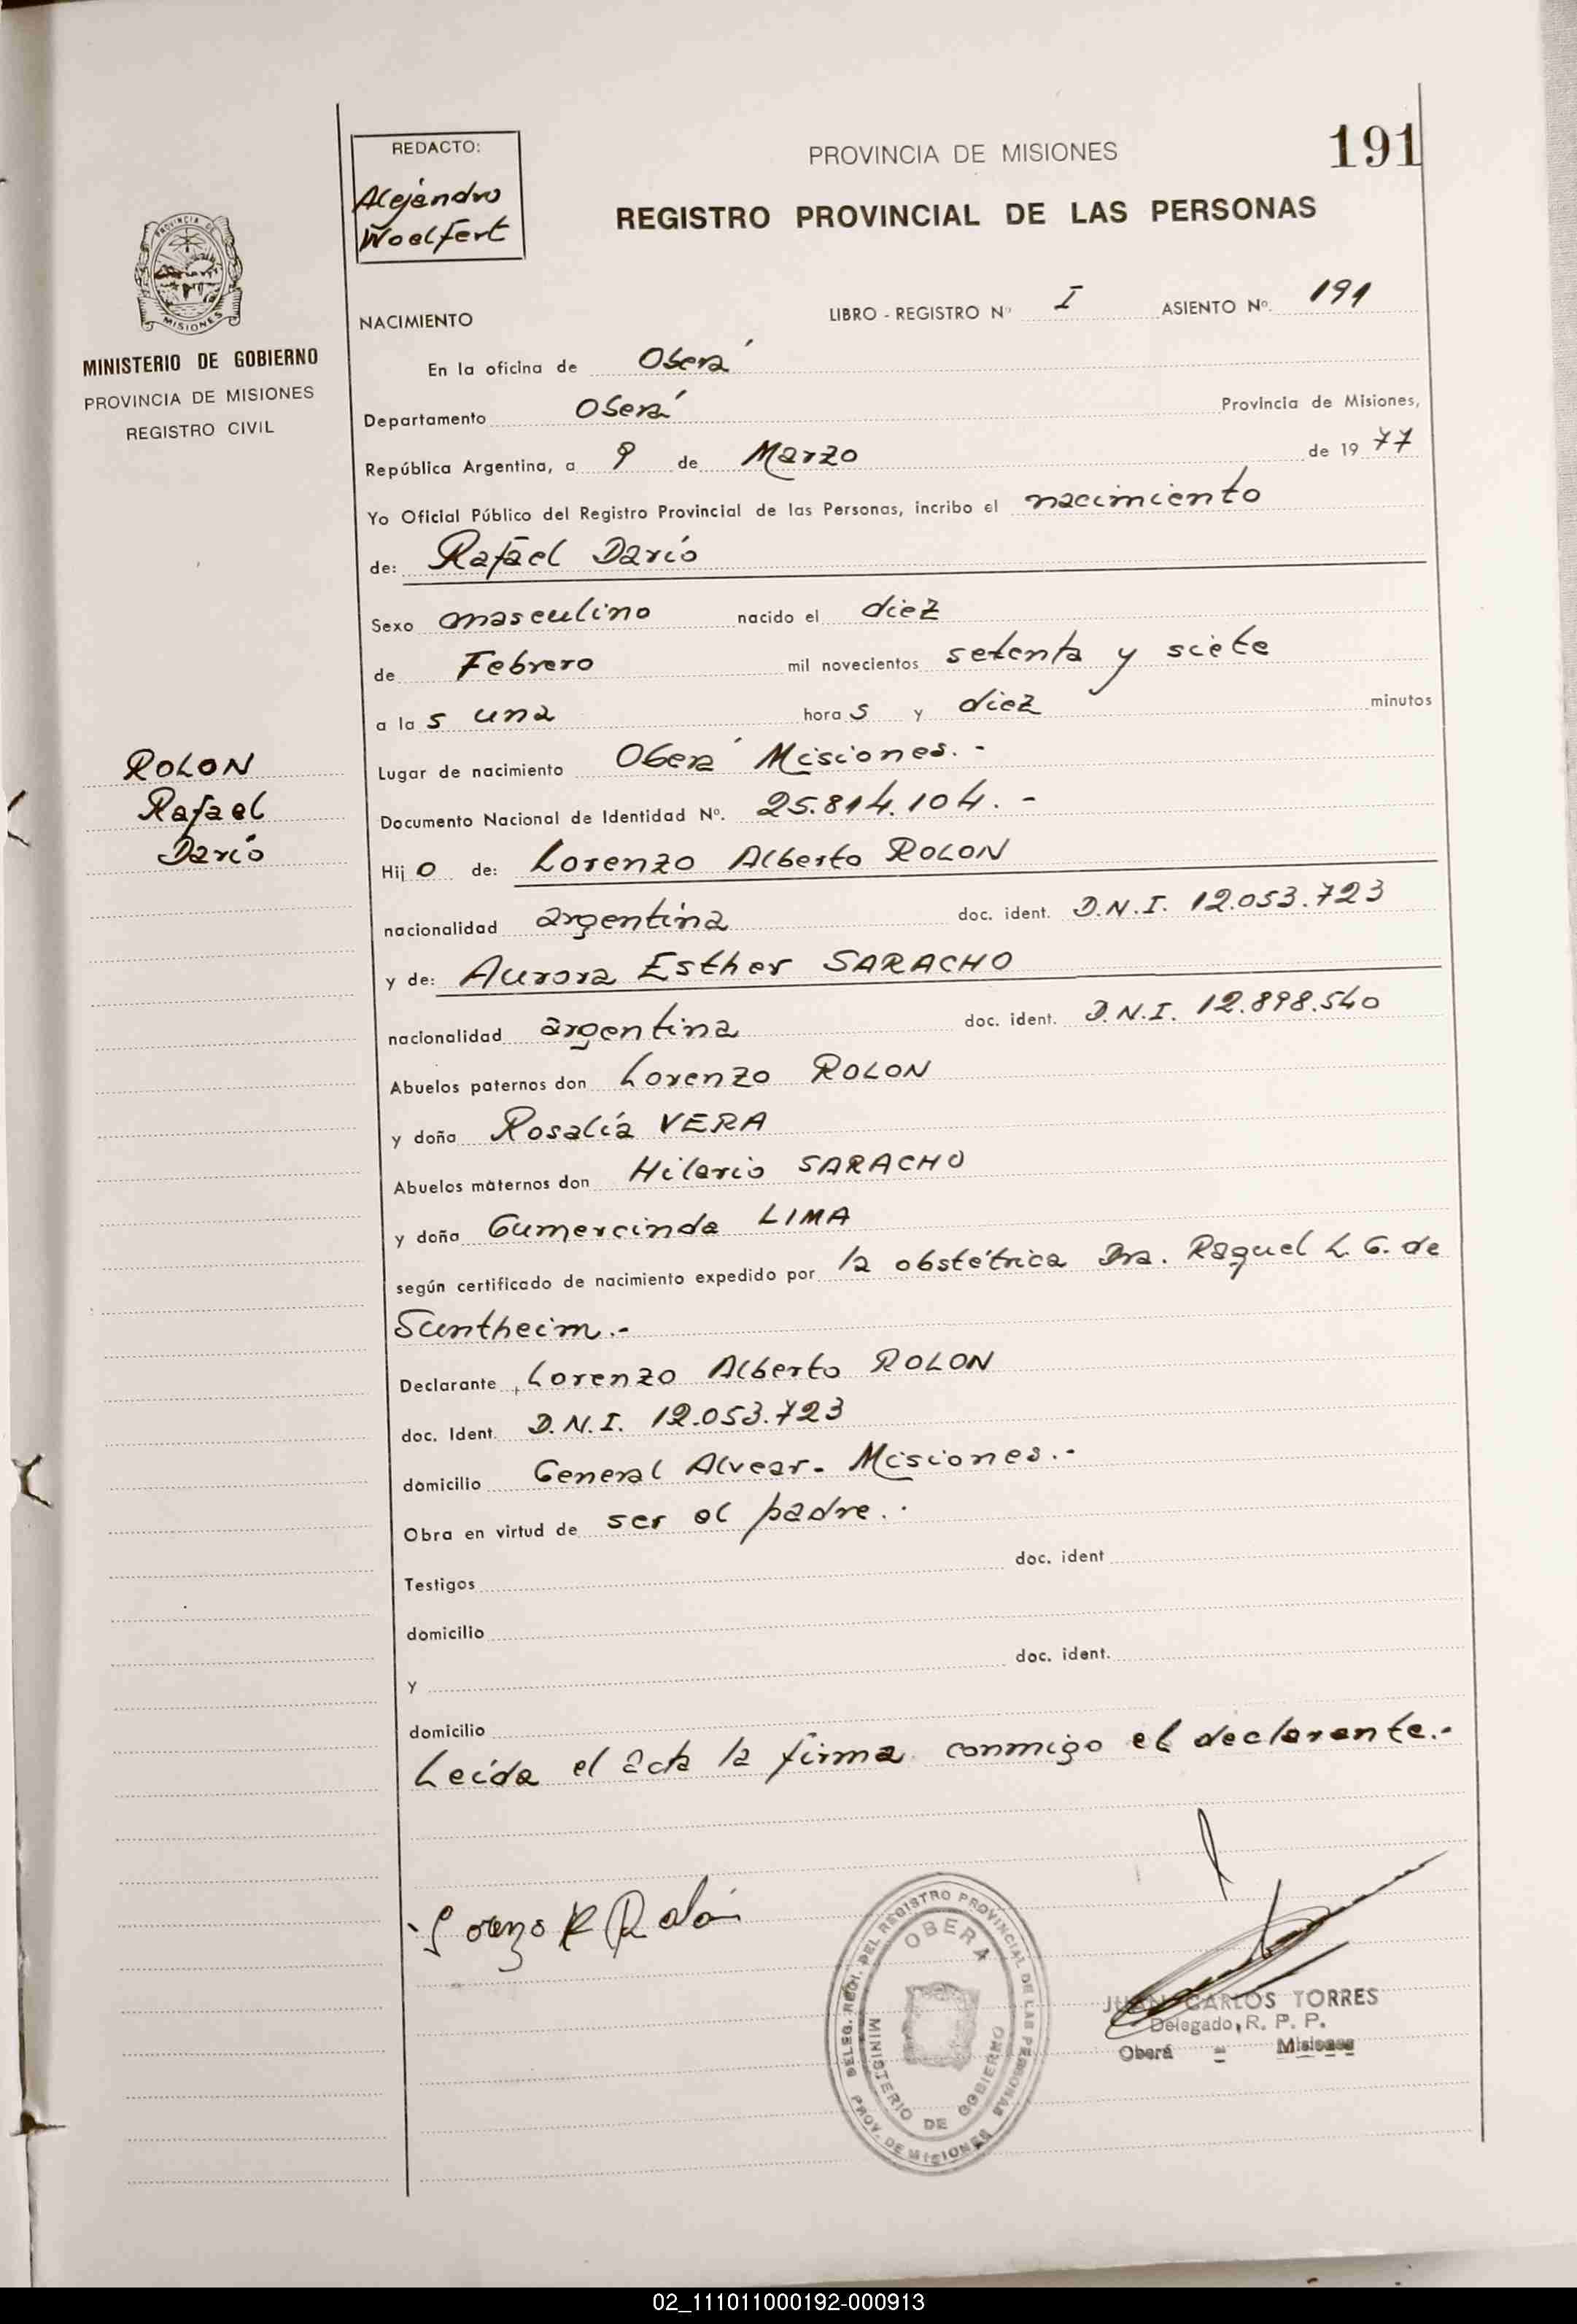 REDACTO:
Alejandro
Woelfert
PROVINCIA DE MISIONES
191
REGISTRO PROVINCIAL DE LAS PERSONAS
PROVINCIA DE
MISIONES
MINISTERIO DE GOBIERNO
PROVINCIA DE MISIONES
REGISTRO CIVIL
NACIMIENTO
LIBRO - REGISTRO Nº I ASIENTO Nº. 191
En la oficina de Oberá
Departamento Oberá Provincia de Misiones,
República Argentina, a 9 de Marzo de 1977
Yo Oficial Público del Registro Provincial de las Personas, incribo el nacimiento
de: Rafael Darío
Sexo masculino nacido el diez
de Febrero mil novecientos setenta y siete
a las una horas y diez minutos
ROLON
Rafael
Darío
Lugar de nacimiento Oberá Misiones.-
Documento Nacional de Identidad Nº. 25.814.104.-
Hijo de: Lorenzo Alberto ROLON
nacionalidad argentina doc. ident. D.N.I. 12.053.723
y de: Aurora Esther SARACHO
nacionalidad argentina doc. ident. D.N.I. 12.898.540
Abuelos paternos don Lorenzo ROLON
y doña Rosalía VERA
Abuelos maternos don Hilario SARACHO
y doña Gumercinda LIMA
según certificado de nacimiento expedido por la obstétrica Dra. Raquel L. G. de
Suntheim.-
Declarante Lorenzo Alberto ROLON
doc. Ident. D.N.I. 12.053.723
domicilio General Alvear- Misiones.-
Obra en virtud de ser el padre.-
Testigos doc. ident
domicilio
y doc. ident.
domicilio
Leída el acta la firma conmigo el declarante.-
Lorenzo A Rolón
DELEG. REGI. DEL REGISTRO PROVINCIAL DE LAS PERSONAS
OBERA
MINISTERIO DE GOBIERNO
PROV. DE MISIONES
JUAN CARLOS TORRES
Delegado, R. P. P.
Oberá - Misiones
02_111011000192-000913